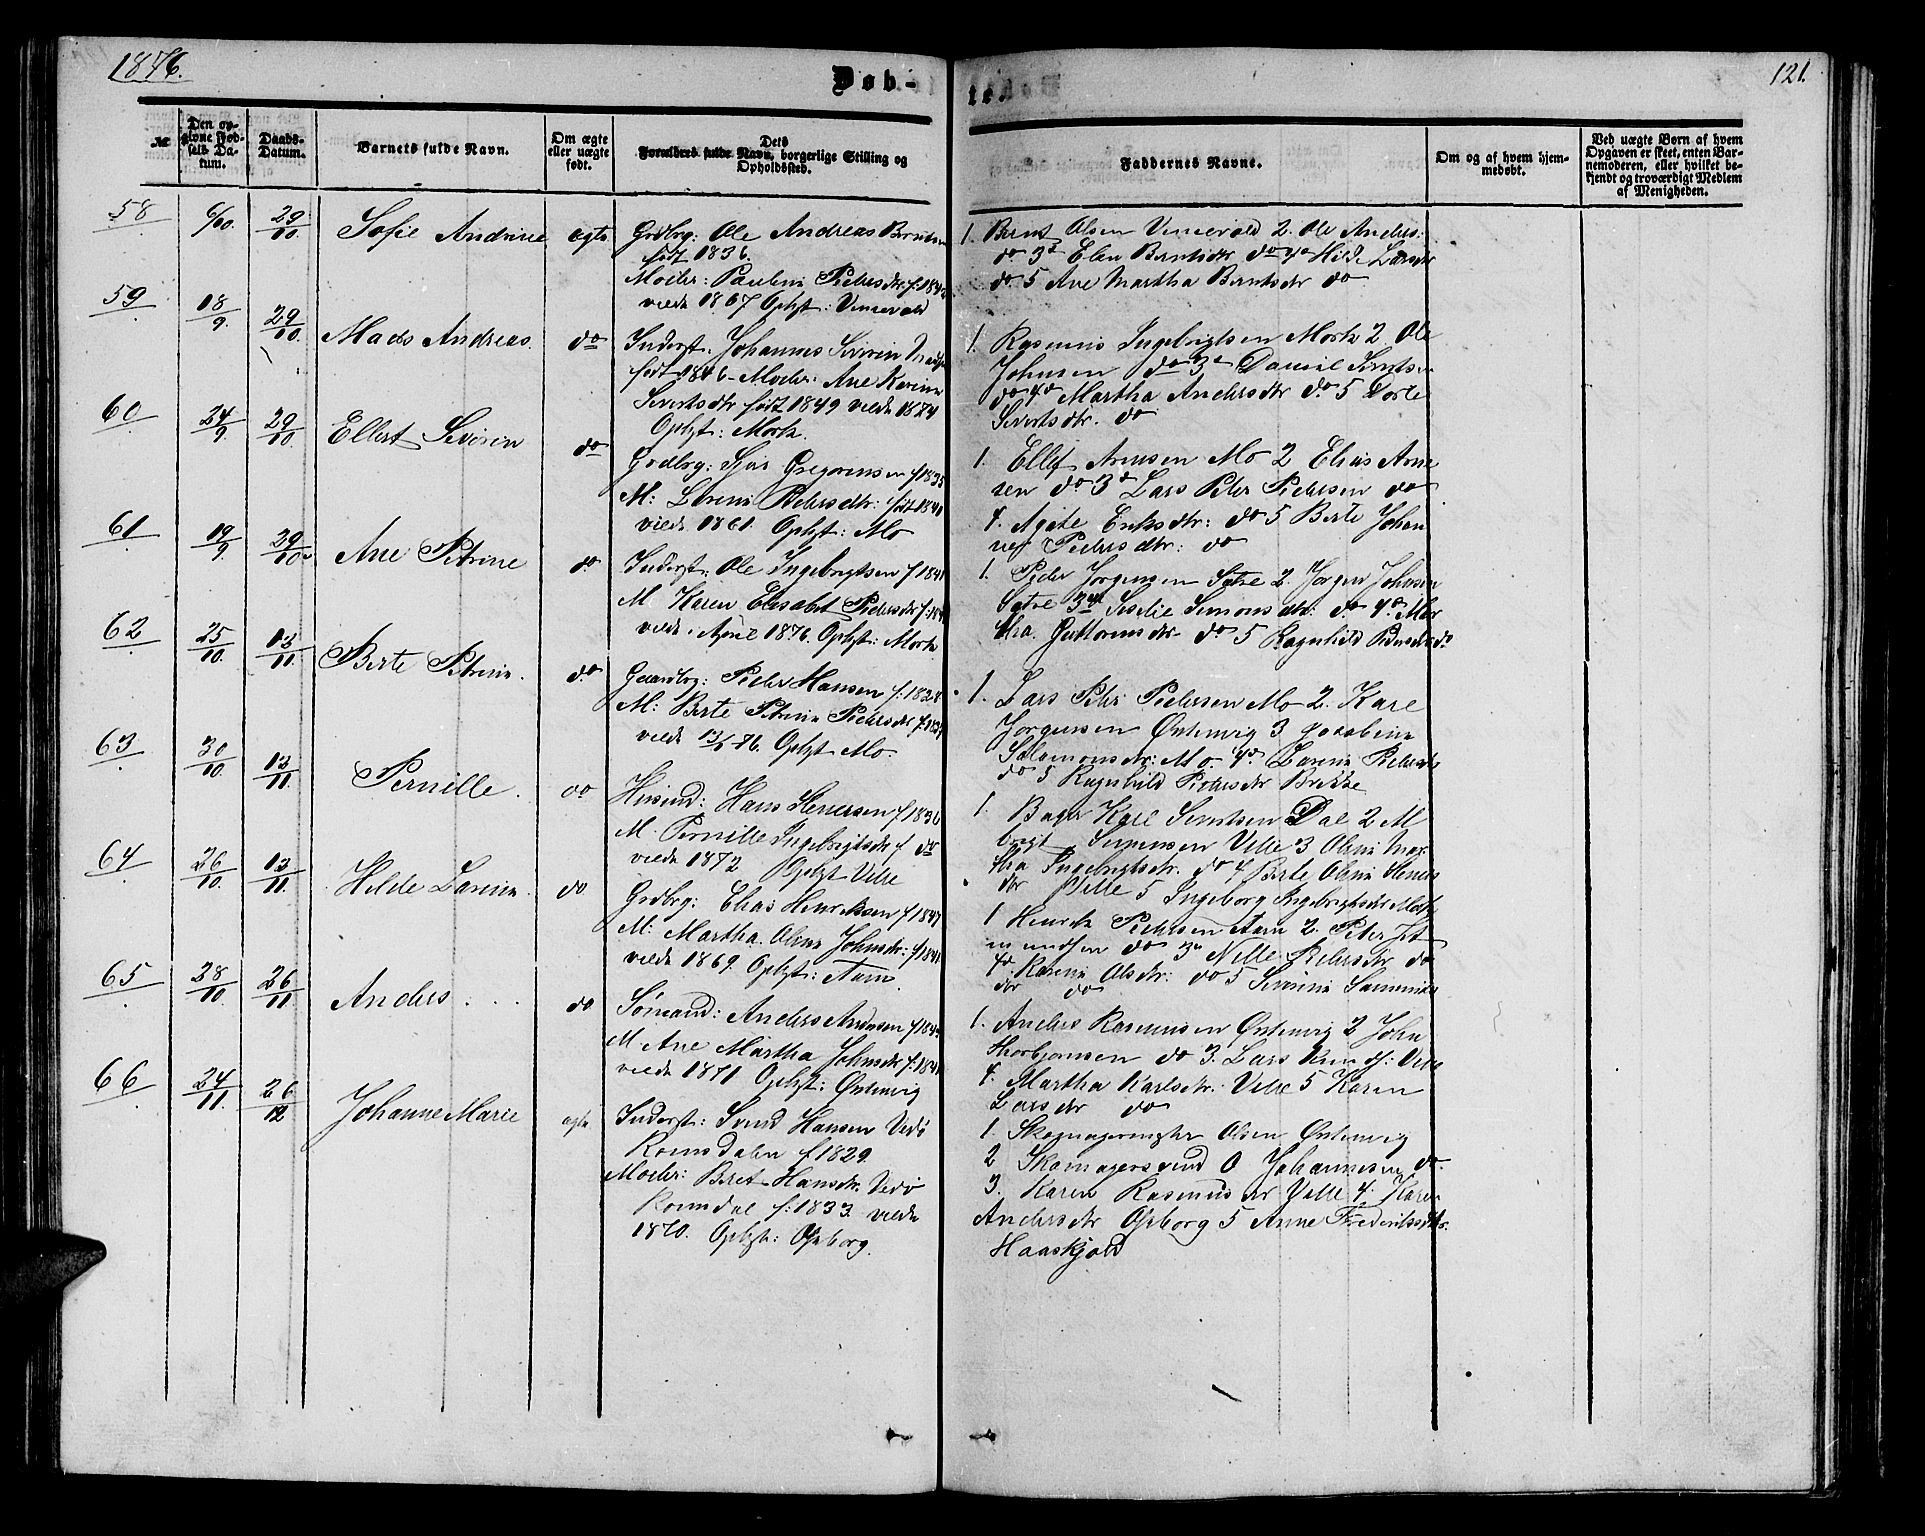 1876.
Døb-
te
121.
№
Den op-
givne Fød-
sels Da-
tum.
Daabs-
Datum.
Barnets fulde Navn.
Om ægte
eller uægte
født.
Dets
Forældres fulde Navn, borgerlige Stilling og
Opholdssted.
Faddernes Navne.
Om og af hvem hjem-
medøbt.
Ved uægte Børn af hvem
Opgaven er skeet, enten Bar-
nemoderen, eller hvilket be-
kjendt og troværdigt Medlem
af Menigheden.
58
6/10.
29/10.
Sofie Andrine
ægte
Grdbrg: Ole Andreas Berntsen
født 1836.
Moder: Pedersdtr f:
viede 1867 Ophzt:
1. Bernt Olsen 2. Ole Anders:
do 3do Elen Berntsdtr do 4do Hilde Larsdtr
do 5 Ane Martha Berntsdtr do
59
18/9.
29/10.
Mads Andreas.
do
Inderst: Johannes Siverin
født 1846 - Moder: Ane Karine
Sivertsdtr født 1849 viede 1874
Ophzt: Mork.
1. Rasmus Ingebrigtsen Mork 2 Ole
Johnsen do 3do Daniel
do 4do Martha Andersdtr do 5 Dorte
Sivertsdtr. do
60
24/9.
29/10.
Ellert Siverin
do
Grdbrg: Gregoriusen f 1835
M: Pedersdtr: født 1841
viede 1861. Ophzt: Mo
1. Ellef Arnesen Mo 2 Elias Arne
sen do 3do Lars Peter Pedersen do
4. Agate Eriksdtr: do 5 Berte Johan
ne Pedersdtr: do
61
19/9
29/10
Ane Petrine
do
Inderst: Ole Ingebrigtsen f 1841
M Karen Elisabet Pedersdtr f:
viede April 1876. Ophzt: Mork
1. Peder Jorgensen Sætre 2. Jørgen Johnsen
Sætre 3die Simonsdtr: do 4do Mar
tha Guttormsdtr do 5 Ragnhild do
62
25/10.
12/11.
Berte Petrine.
do
Gaardbrg: Peder Hansen f: 1828
M: Berte Petrine Pedersdtr f:
viede 76. Ophzt Mo.
1. Lars Peter Pedersen Mo 2. Karl
Jørgensen Østenvig 3 Jacobine
Salamonsdtr: Mo. 4do Larine
do 5 Ragnhild Pedersdtr Brekke
63
30/10.
12/11.
Pernille.
do
Husmd: Hans f 1836
M. Pernille Ingebrigtsdtr f do
viede 1872 Ophzt Velle
1. Karl Sivertsen Dal 2
Velle 3 Oline Mar
tha Ingebrigtsdtr. do 4 Berte Oline
dtr Velle 5 Ingeborg Ingebrigtsdtr
64
26/10.
12/11.
Hilde Larine.
do
Grdbrg: Elias Henriksen f 1847
M: Martha Oline Johnsdtr: f 1841
viede 1869. Ophzt: Aam.
1 Henrik Pedersen Aam 2. Peter
do 3do Nille Pedersdtr do
4do Karine Olsdtr: do 5 Siverine
dtr do
65
28/10.
26/11
Anders . . .
do
Sømand: Anders Andersen f
M Ane Martha Johnsdtr f: 1841
viede 1871 Ophzt: Østenvig
1. Anders Rasmussen Østenvig 2 John
Thorbjørnsen do 3. Lars Velle
4. Martha Karlsdtr: Velle 5 Karen
Larsdtr do
66
24/11.
26/12
Johanne Marie
ægte
Inderst: Svend Hansen Vedø
Romsdalen f 1829.
Moder: Beret Hansdtr. Vedø
Romsdal f: 1833. viede
1870. Ophzt: Osborg.
1. Olsen Østenvig
2 Skomagersvend O Johannesen do
3. Karen Rasmusdtr Velle 4: Karen
Andersdtr Osborg 5 Anne Frederiksdtr.
Haaskjold